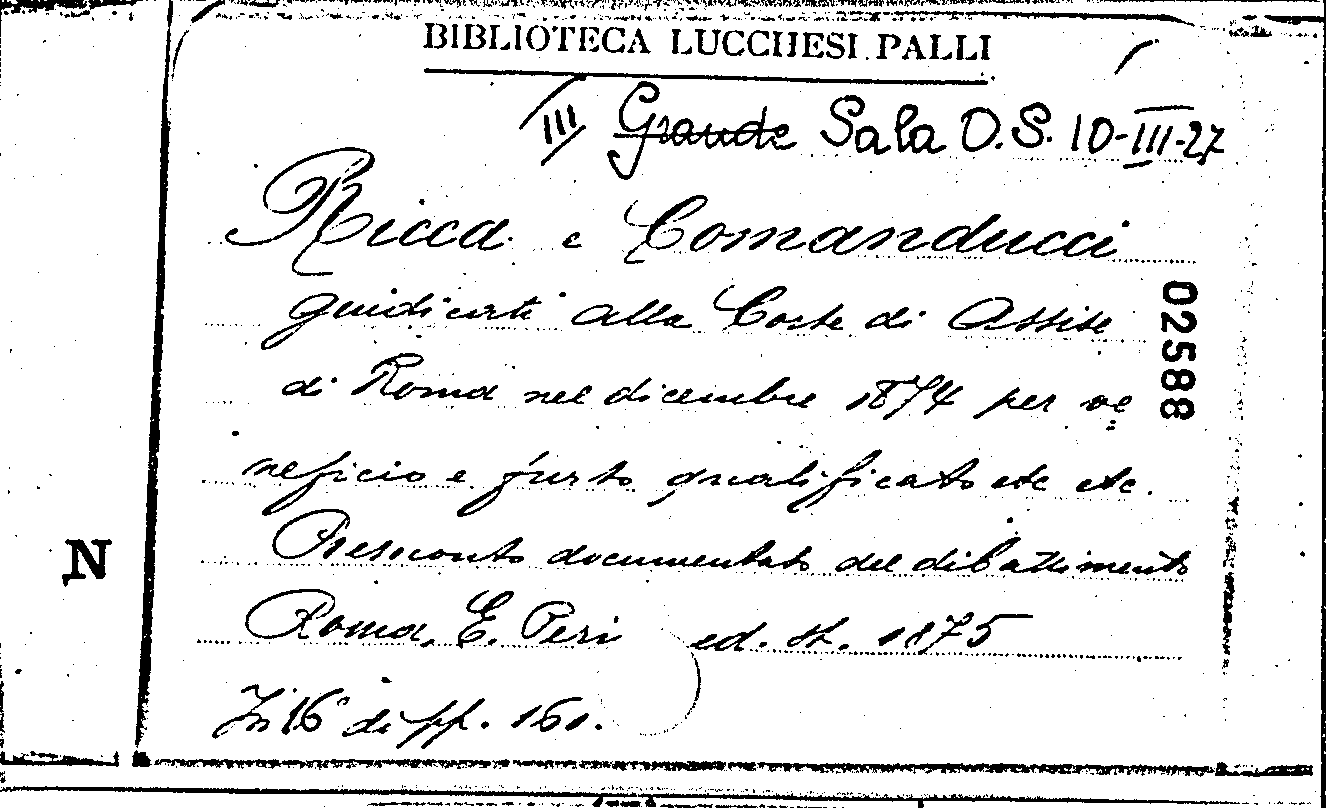 BIBLIOTECA LUCCHESI PALLI
III Grande Sala O.S. 10-III-27
Ricca e Comanducci
giudicati alla Corte di Assise
di Roma nel dicembre 1874 per ve
neficio e furto qualificato etc etc.
Resoconto documentato del dibattimento
Roma, E. Peri ed. st. 1875
In 16° di pp. 160.
02588
N